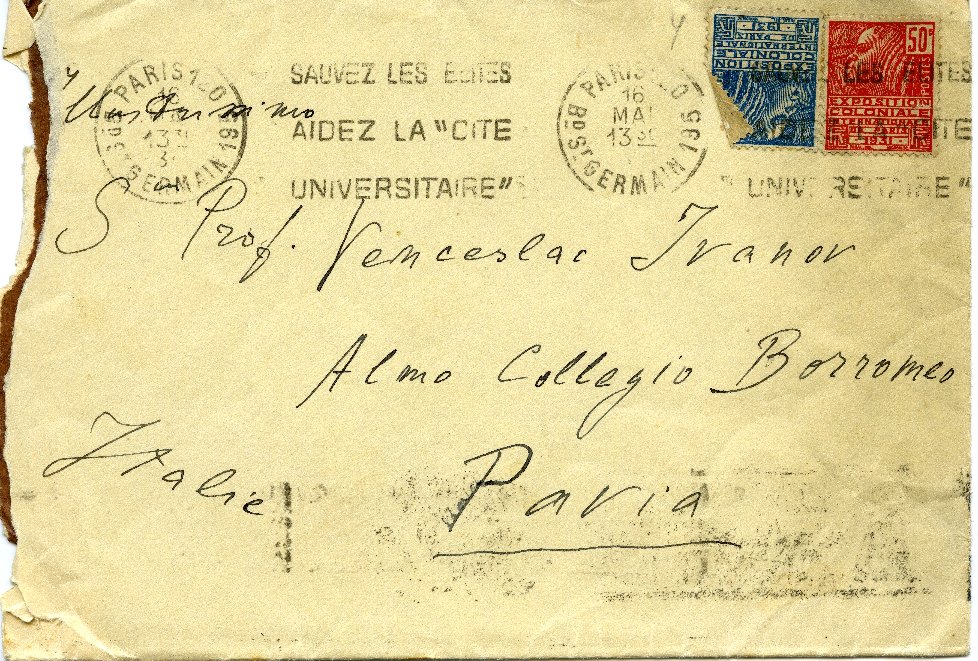 PARIS 120
16
13
3
Bd St GERMAIN 195
SAUVEZ LES ELITES
AIDEZ LA "CITE
UNIVERSITAIRE"
PARIS 120
16
MAI
13 30
Bd St GERMAIN 195
EXPOSITION
COLONIALE
INTERNATIONALE
DE PARIS
1931
50c
EXPOSITION
COLONIALE
INTERNATIONALE
PARIS 1931
LES ELITES
LA CITE
" UNIVERSITAIRE "
Illustrissimo
S Prof. Venceslao Ivanov
Almo Collegio Borromeo
Italie
Pavia